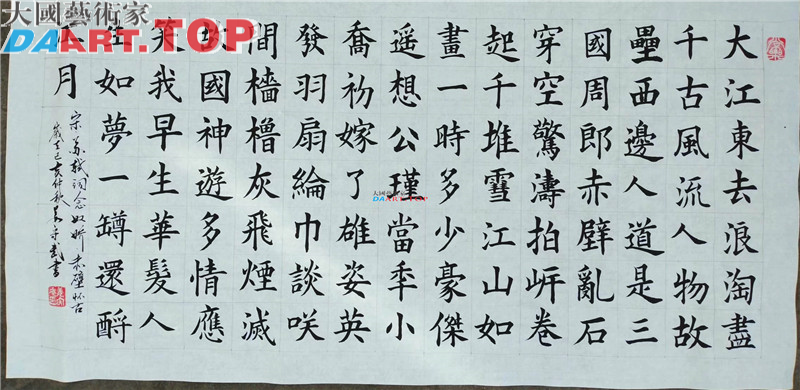 大國藝術家
DAART.TOP
大江東去浪淘盡
千古風流人物故
壘西邊人道是三
國周郎赤壁亂石
穿空驚濤拍岍卷
起千堆雪江山如
畫一時多少豪傑
遥想公瑾當秊小
喬初嫁了雄姿英
發羽扇綸巾談咲
間檣櫓灰飛煙滅
故國神遊多情應
笑我早生華髮人
如夢一罇還酹
江月
宋苏軾词念奴娇赤壁怀古
己亥仲秋書
大國藝術家
DAART.TOP